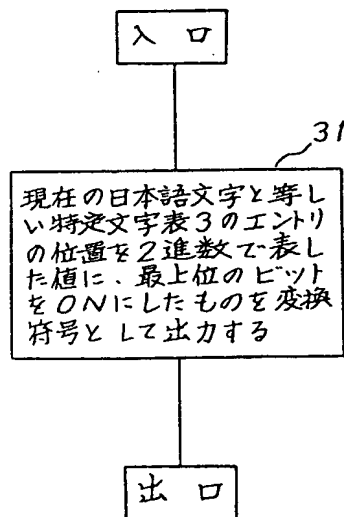 入口
31
現在の日本語文字と等し
い特定文字表3のエントリ
の位置を2進数で表し
た値に、最上位のビット
をONにしたものを変換
符号として出力する
出口